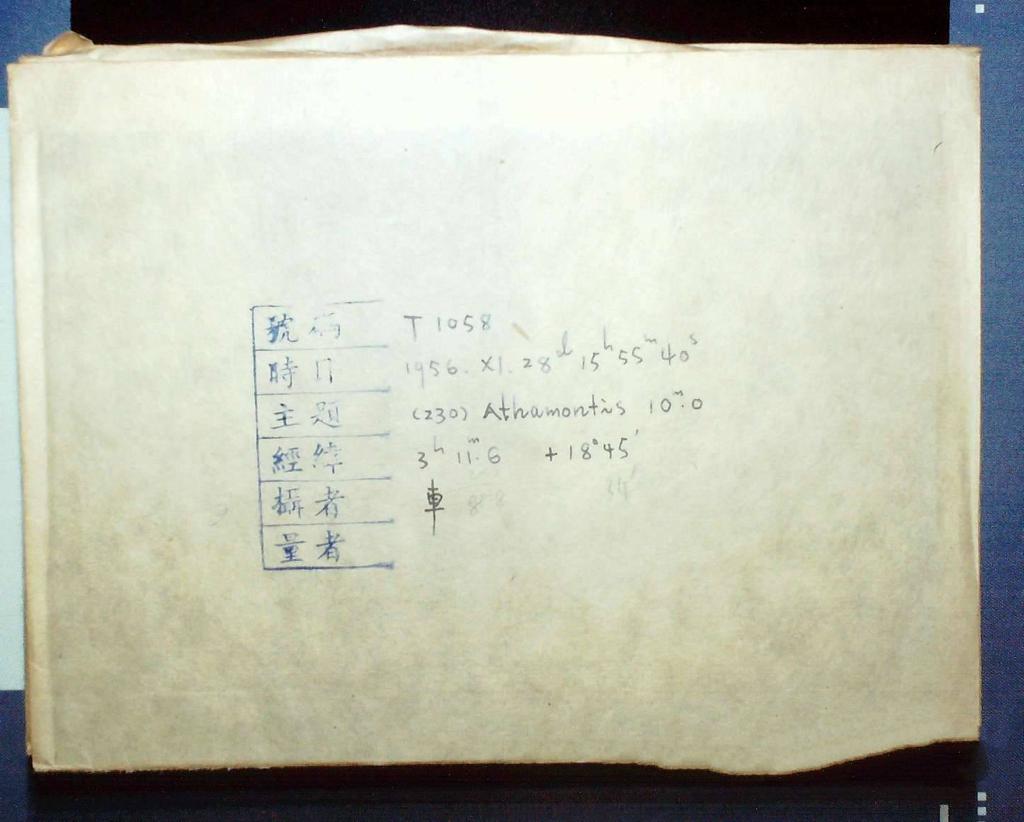 號稱 T 1058
時日 1956. XI. 28ᵈ 15ʰ 55ᵐ 40ˢ
主題 (230) Athamontis 10ᵐ.0
經緯 3ʰ 11ᵐ.6 +18°45′
攝者 車
量者